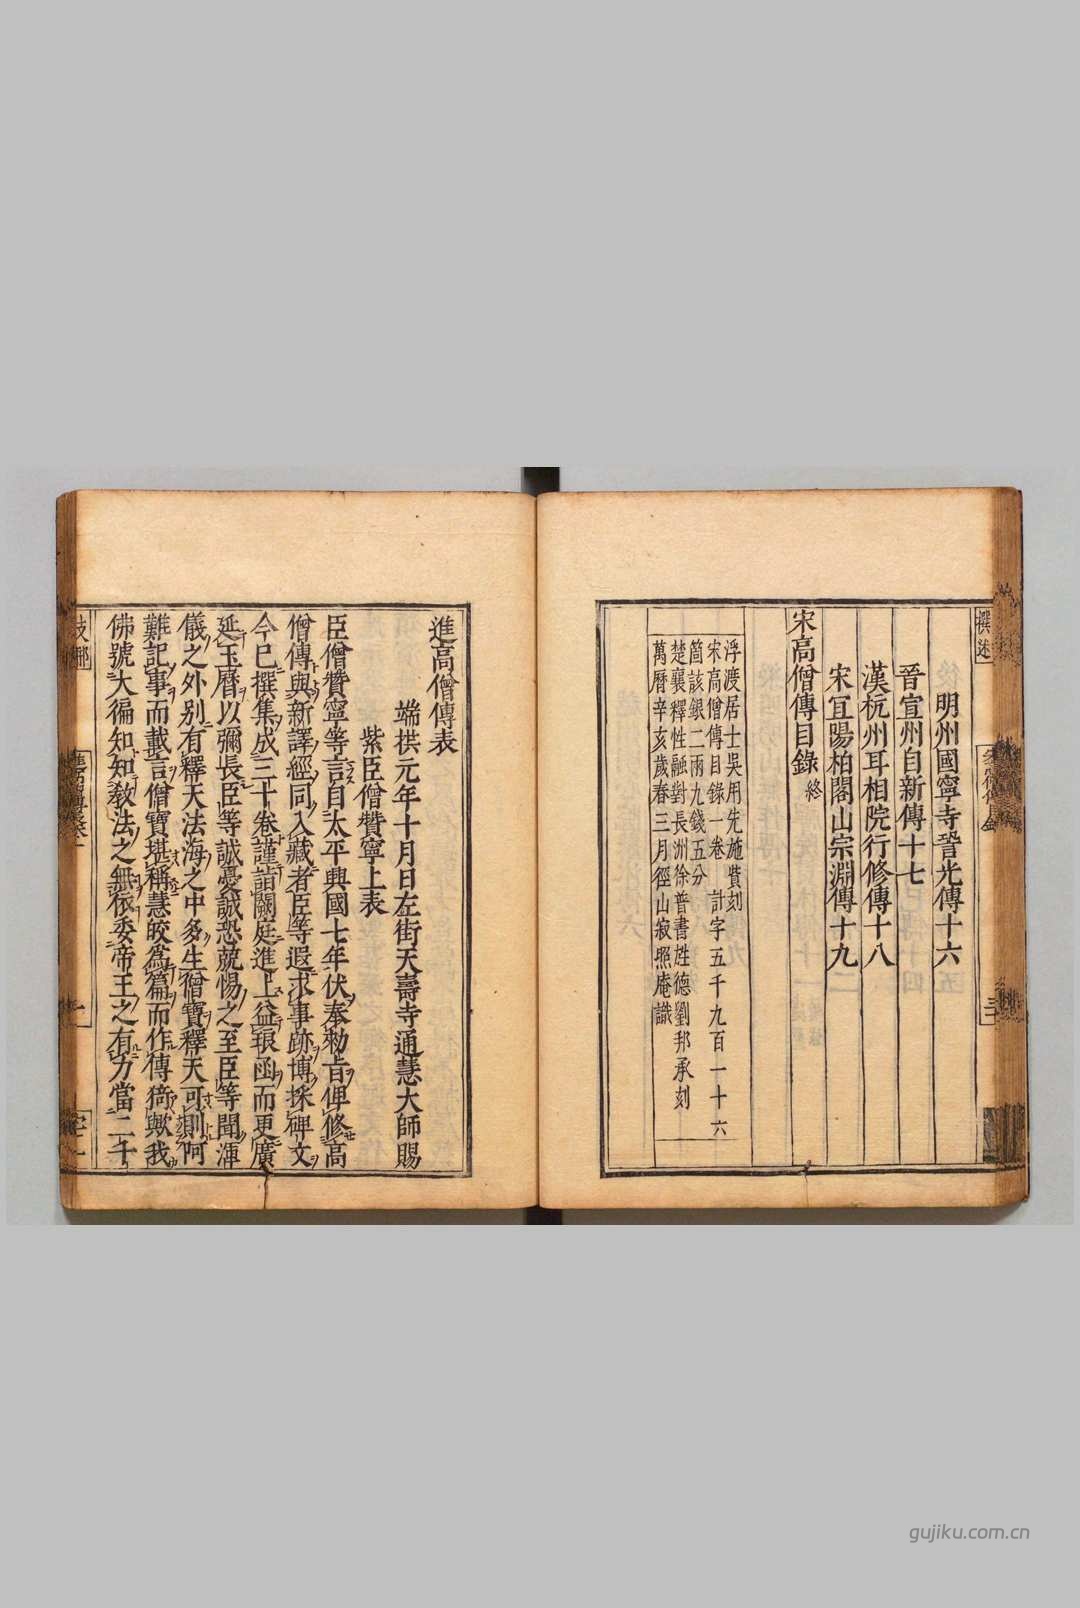 撰述
明州國寧寺䛒光傳十六
晉宣州自新傳十七
漢杭州耳相院行修傳十八
宋宜陽柏閣山宗淵傳十九
宋高僧傳目錄終
浮渡居士吳用先施貲刻
宋高僧傳目錄一卷　計字五千九百一十六
箇該銀二兩九錢五分
楚襄釋性融對長洲徐普書姓德劉邦承刻
萬曆辛亥歲春三月徑山寂照庵識
進高僧傳表
端拱元年十月日左街天壽寺通慧大師賜
紫臣僧贊寧上表
臣僧贊寧等言自太平興國七年伏奉勑旨俾修高
僧傳與新譯經同入藏者臣等遐求事跡博採碑文
今已撰集成三十卷謹詣闕庭進上益琅函而更廣
延玉曆以彌長臣等誠憂誠恐兢惕之至臣等聞渾
儀之外別有釋天法海之中多生僧寶釋天可則阿
難記事而載言僧寶堪稱慧皎爲篇而作傳猗歟我
佛號大徧知知敎法之無依委帝王之有力當二千
gujiku.com.cn